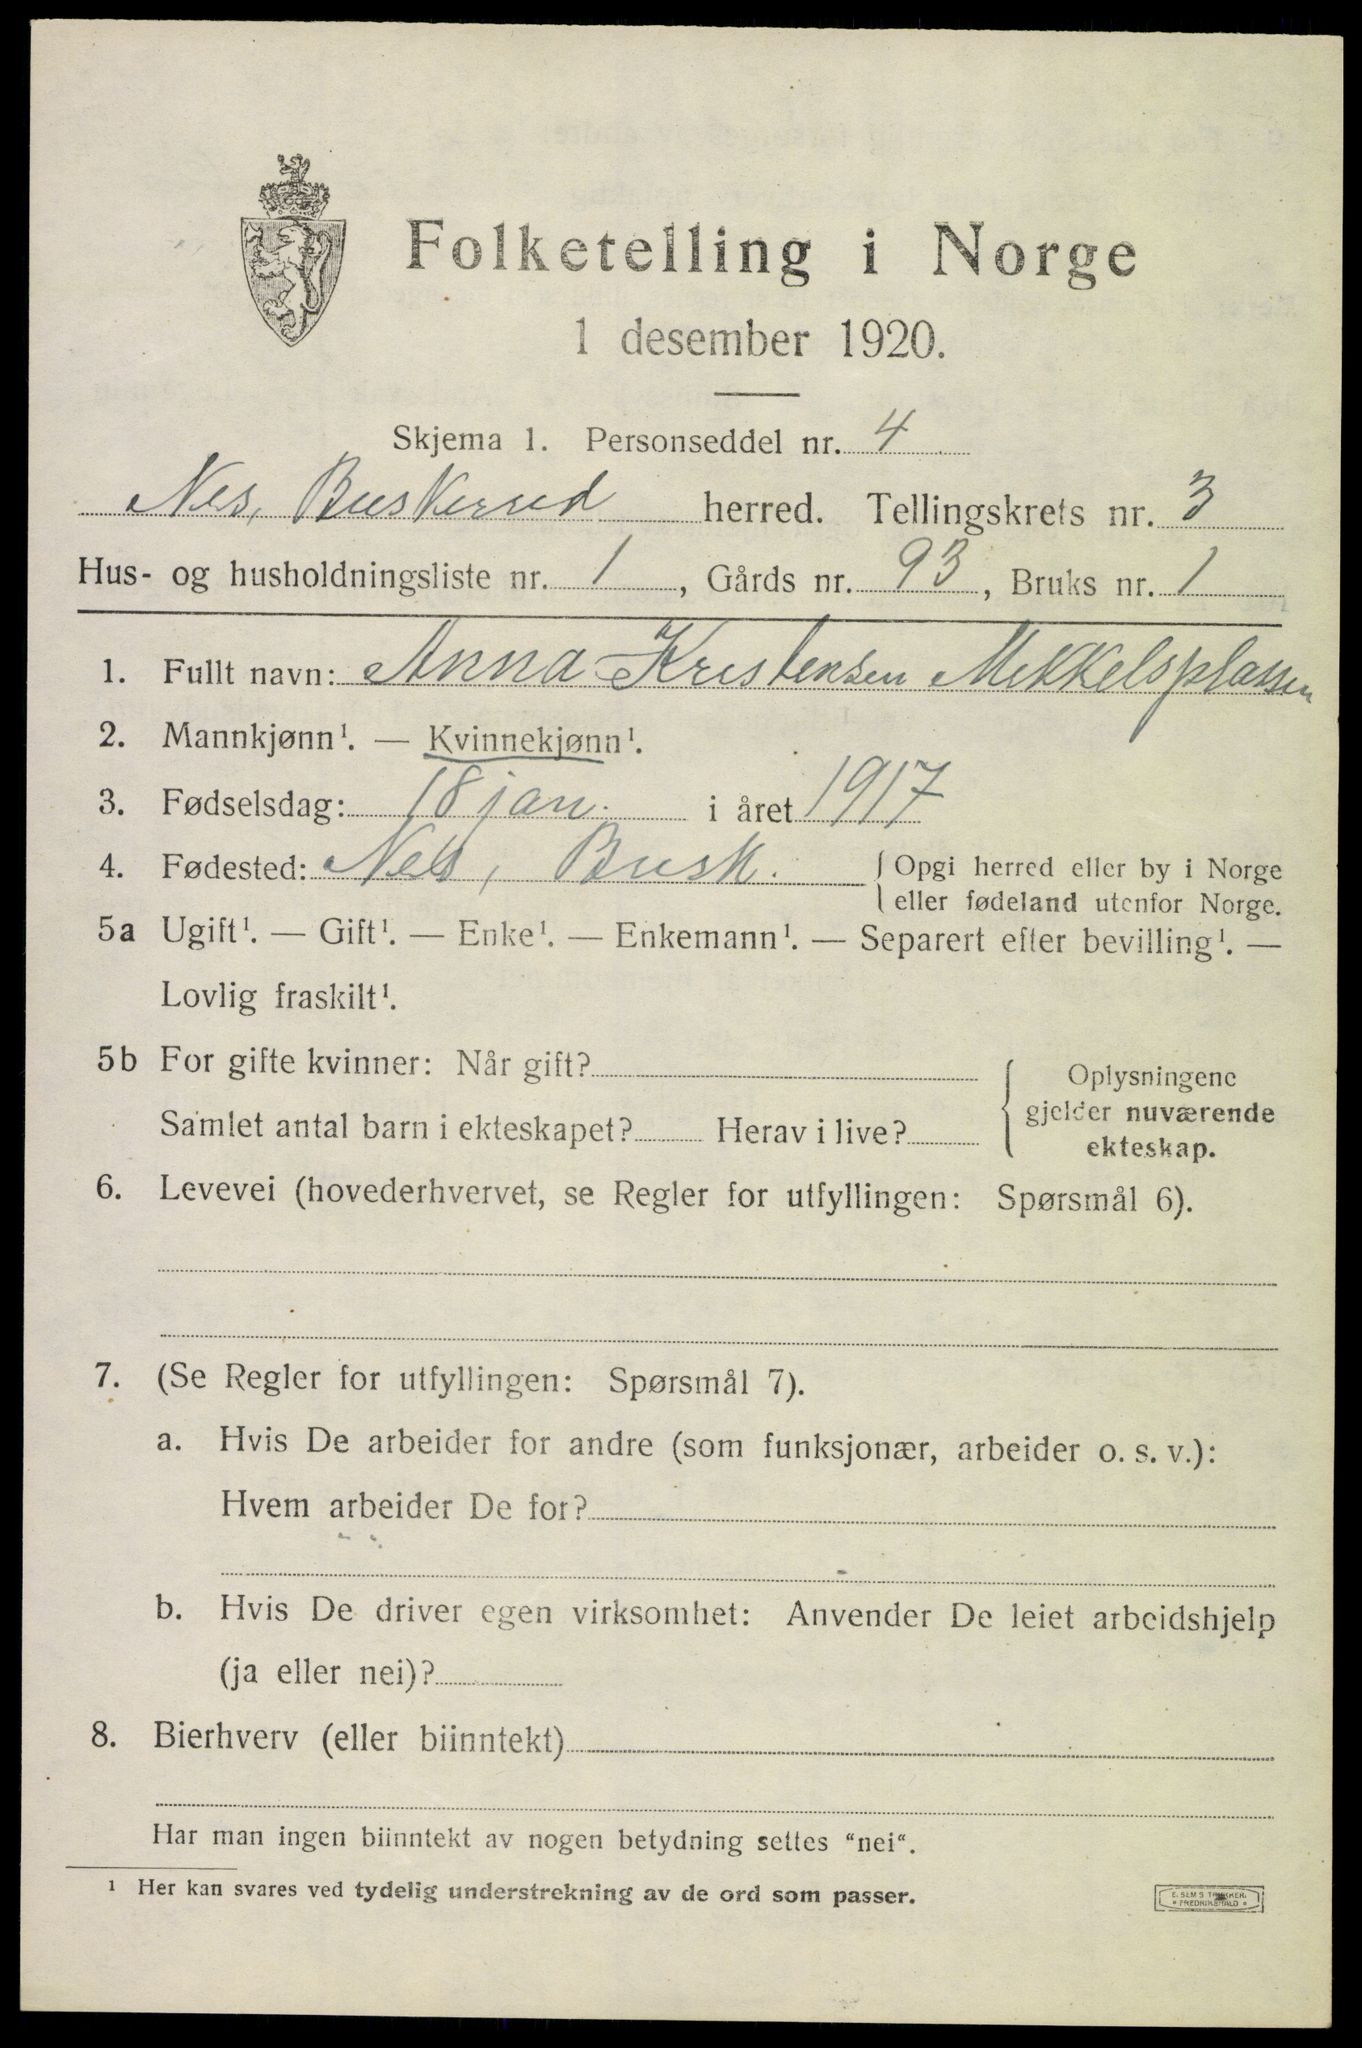 Folketelling i Norge
1 desember 1920.
Skjema 1. Personseddel nr. 4
Nes, Buskerud herred. Tellingskrets nr. 3
Hus- og husholdningsliste nr. 1, Gårds nr. 93, Bruks nr. 1
1. Fullt navn: Anna Kristensen Mikkelsplassen
2. Mannkjønn¹. — Kvinnekjønn¹.
3. Fødselsdag: 18 jan. i året 1917
4. Fødested: Nes, Busk. { Opgi herred eller by i Norge
eller fødeland utenfor Norge.
5a Ugift¹. — Gift¹. — Enke¹. — Enkemann¹. — Separert efter bevilling¹. —
Lovlig fraskilt¹.
5b For gifte kvinner: Når gift?
Samlet antal barn i ekteskapet? Herav i live?
{ Oplysningene
gjelder nuværende
ekteskap.
6. Levevei (hovederhvervet, se Regler for utfyllingen: Spørsmål 6).
7. (Se Regler for utfyllingen: Spørsmål 7).
a. Hvis De arbeider for andre (som funksjonær, arbeider o. s. v.):
Hvem arbeider De for?
b. Hvis De driver egen virksomhet: Anvender De leiet arbeidshjelp
(ja eller nei)?
8. Bierhverv (eller biinntekt)
Har man ingen biinntekt av nogen betydning settes “nei“.
¹ Her kan svares ved tydelig understrekning av de ord som passer.
E. SEMS TRYKKERI.
FREDRIKSHALD